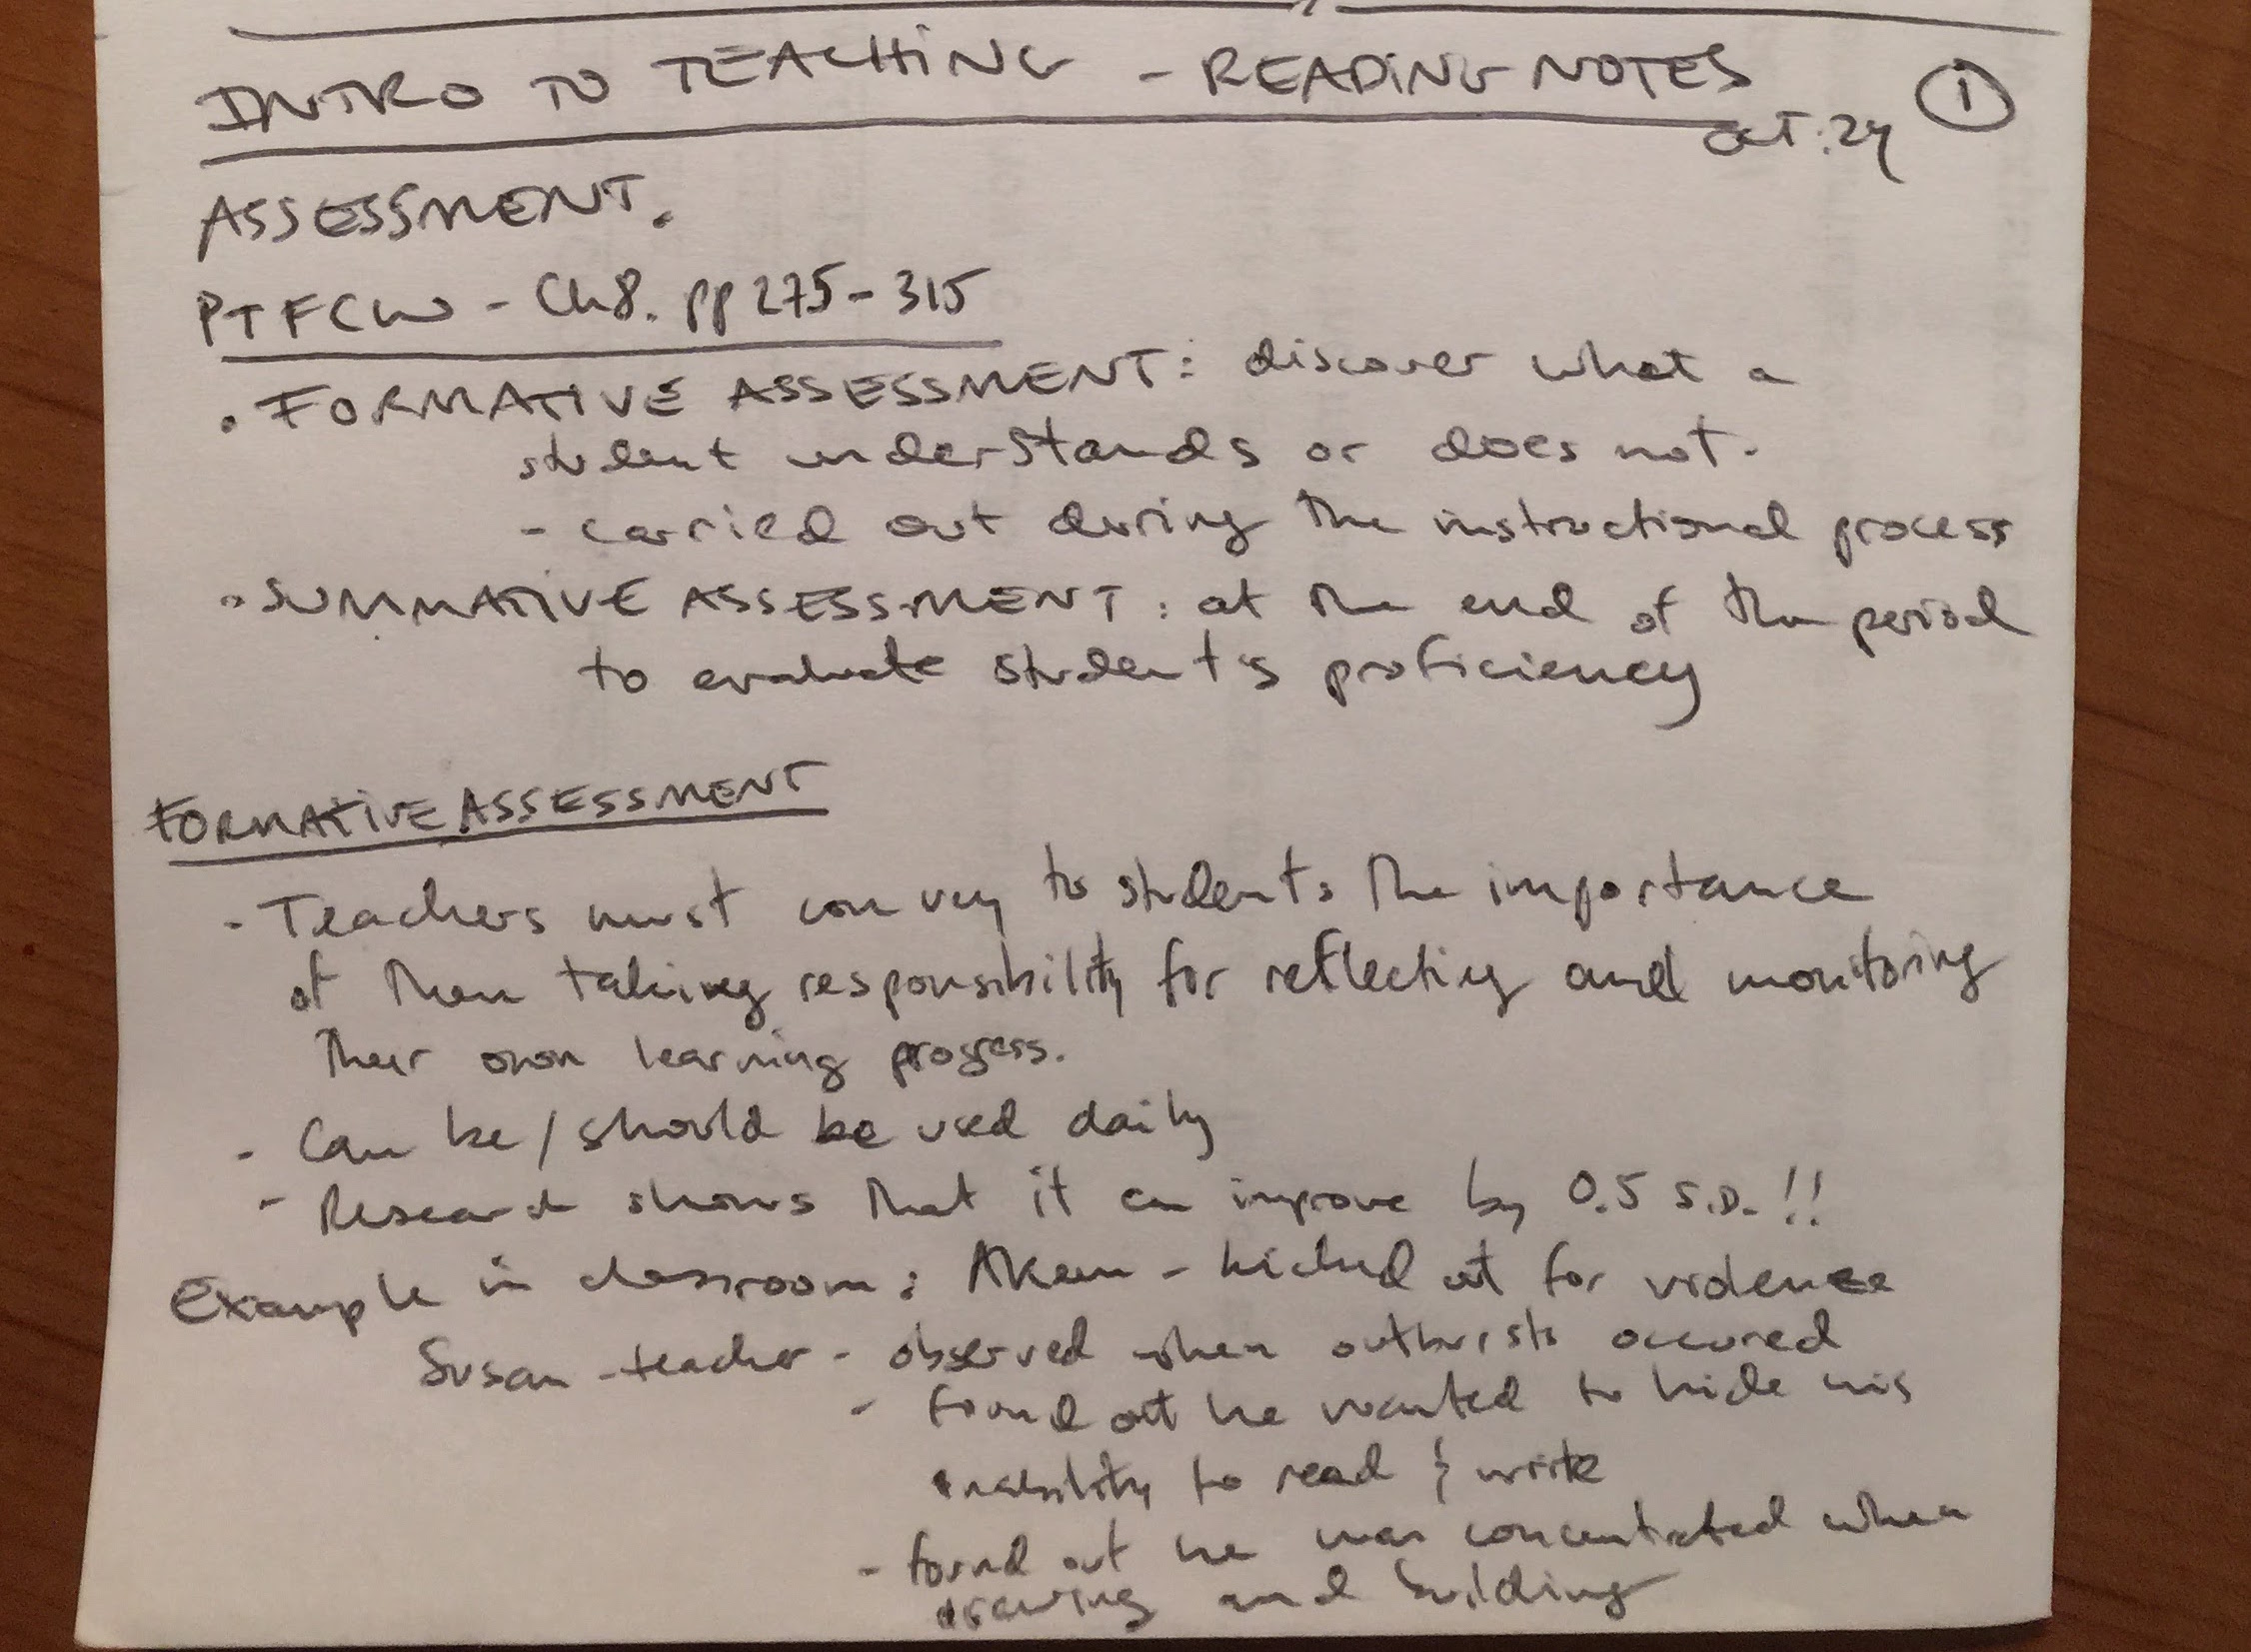 INTRO TO TEACHING - READING NOTES
OCT. 24 1
ASSESSMENT.
PTFCW - Ch8. pp 275-315
• FORMATIVE ASSESSMENT: discover what a
student understands or does not.
- carried out during the instructional process
• SUMMATIVE ASSESSMENT: at the end of the period
to evaluate student's proficiency
FORMATIVE ASSESSMENT
- Teachers must convey to students the importance
of them taking responsibility for reflecting and monitoring
their own learning progress.
- Can be / should be used daily
- Research shows that it can improve by 0.5 S.D. !!
Example in classroom: Akeem - kicked out for violence
Susan - teacher - observed when outbursts occured
- found out he wanted to hide his
inability to read & write
- found out he was concentrated when
drawing and building